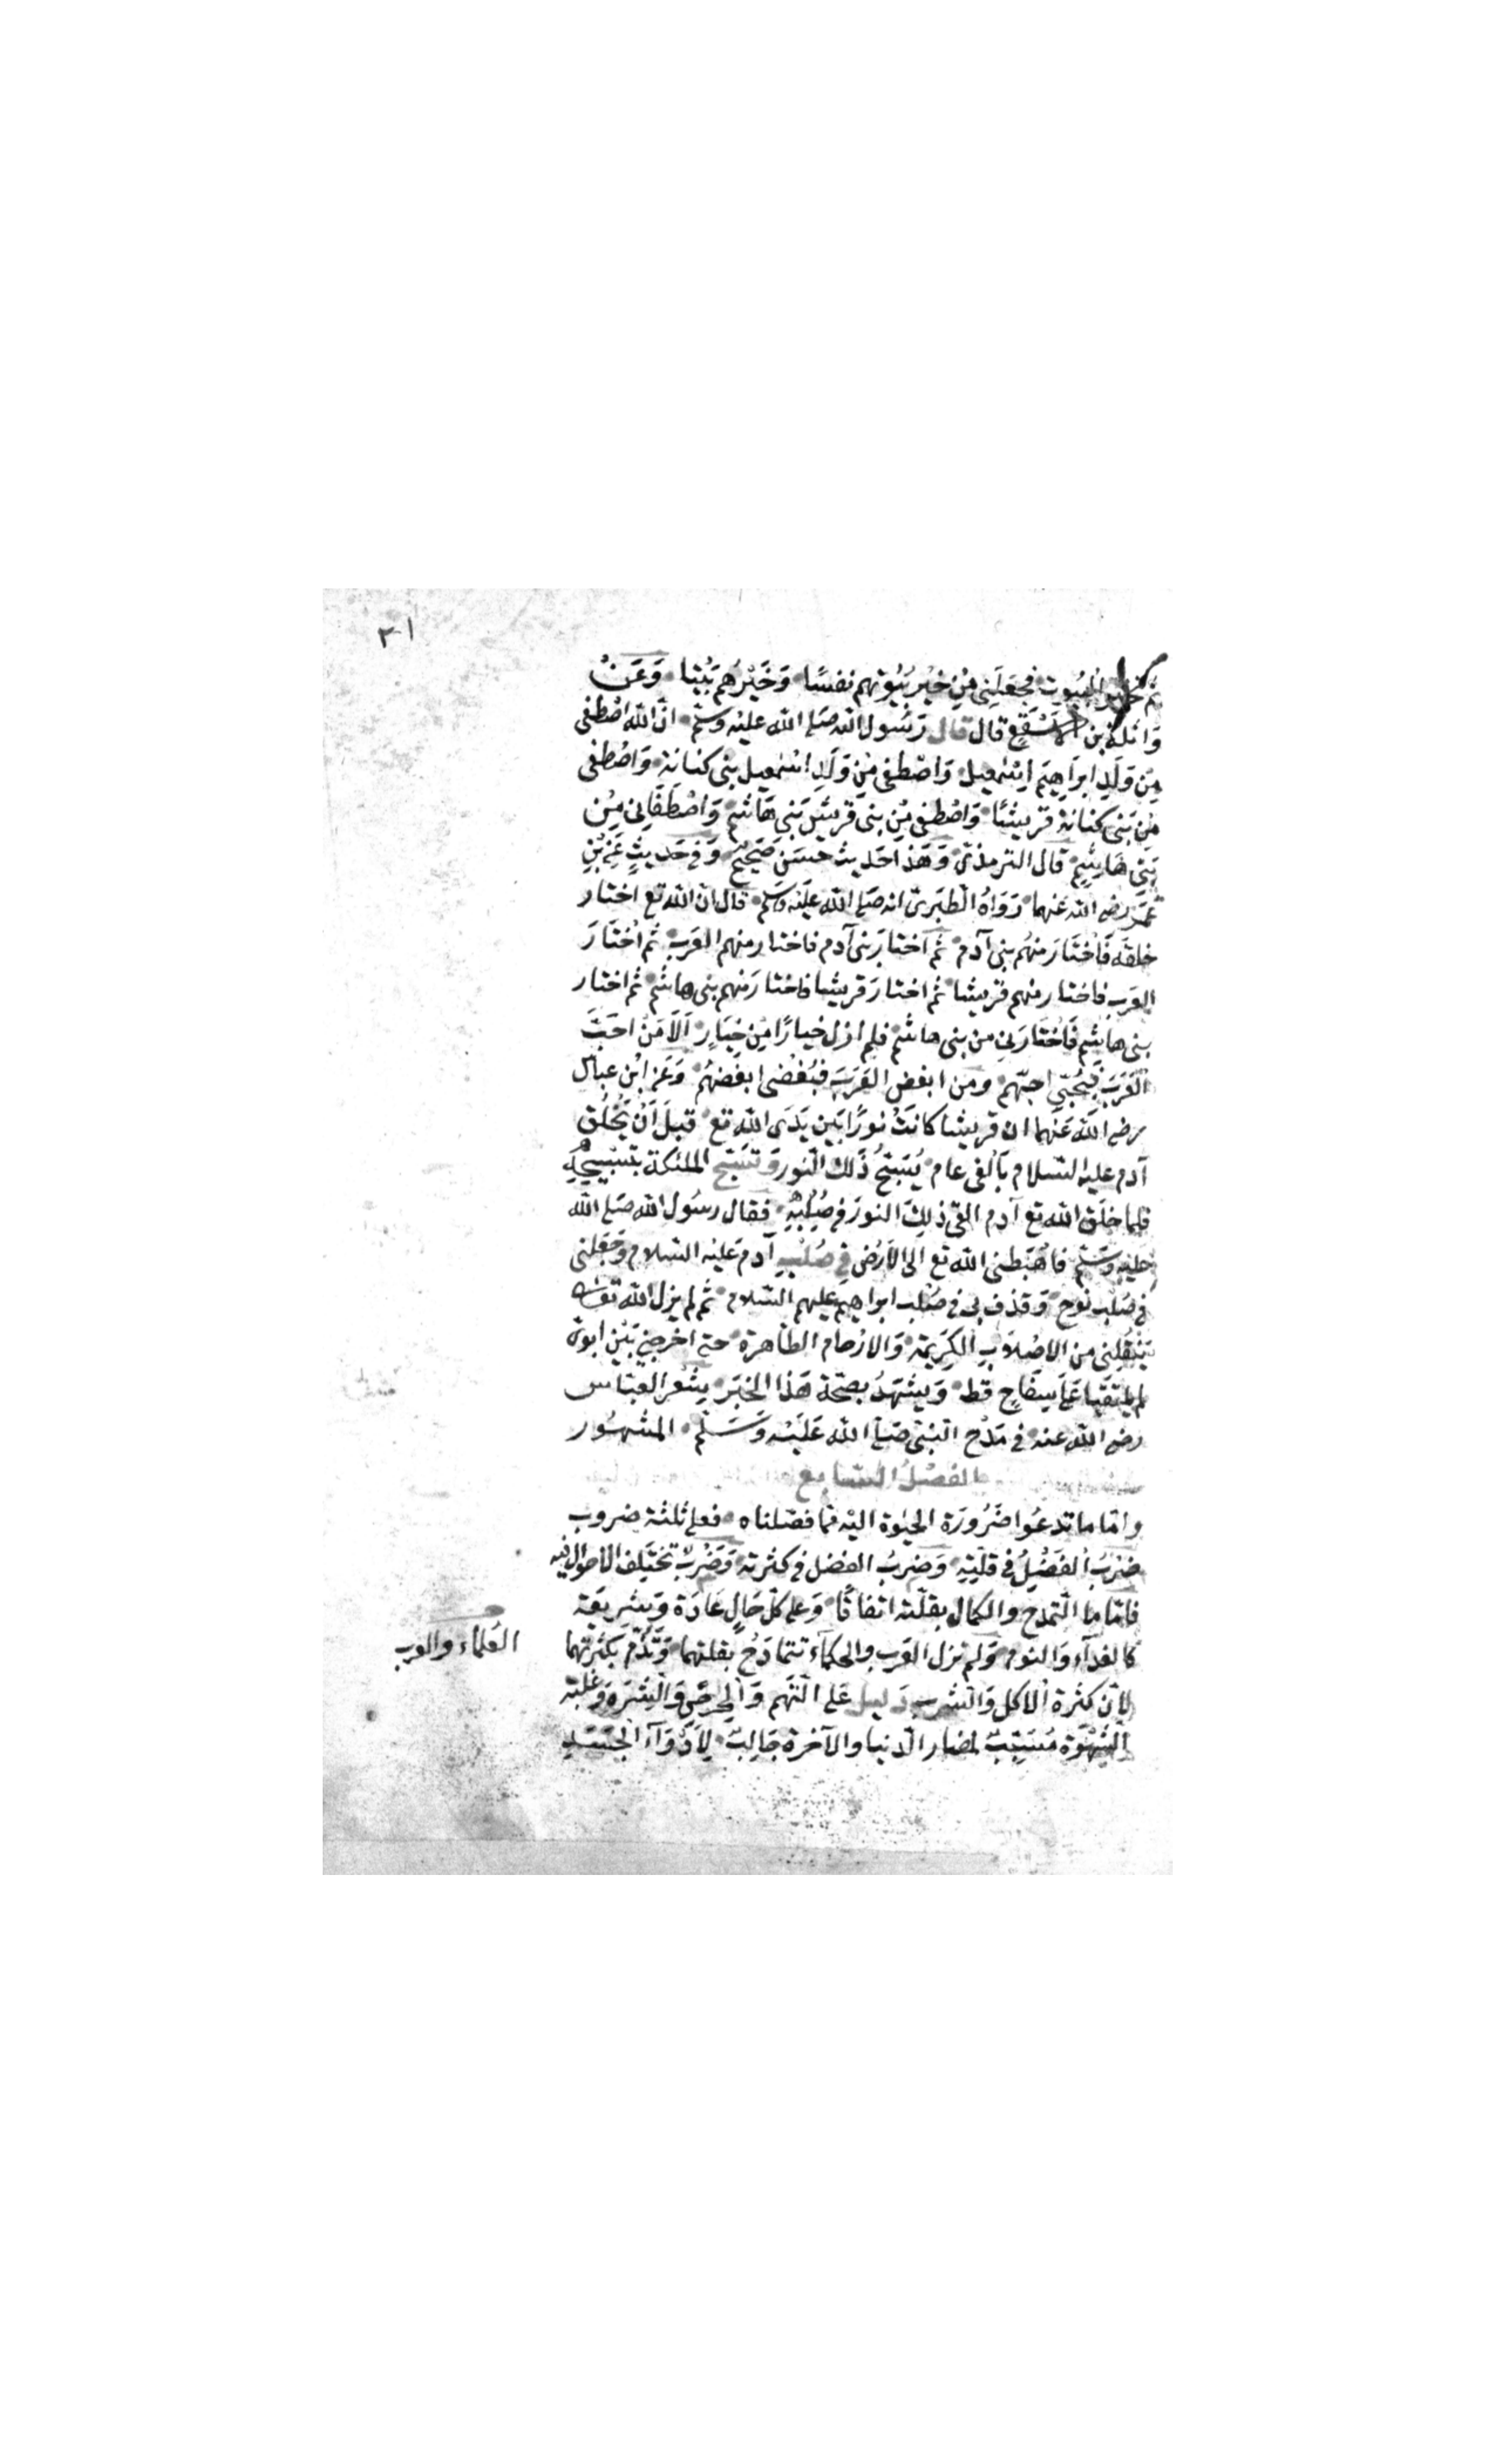 ٣١
ثم تخير البيوت فجعلني من خير بيوتهم نفسًا وخيرهم بيتا وعن
واثلة بن الاسقع قال قال رسول الله صلى الله عليه وسلم ان الله اصطفى
من ولد ابراهيم اسمعيل واصطفى من ولد اسمعيل بني كنانة واصطفى
من بني كنانة قريشًا واصطفى من بني قريش بني هاشم واصطفاني من
بني هاشم قال الترمذي وهذا حديث حسن صحيح وفي حديث عن بن
عمر رضي الله عنهما رواه الطبري انه صلى الله عليه وسلم قال ان الله تع اختار
خلقه فاختار منهم بني آدم ثم اختار بني آدم فاختار منهم العرب ثم اختار
العرب فاختار منهم قريشا ثم اختار قريشا فاختار منهم بني هاشم ثم اختار
بني هاشم فاختارني من بني هاشم فلم ازل خيارًا من خيار الا من احب
العرب فبحبي احبهم ومن ابغض العرب فببغضي ابغضهم وعن ابن عباس
رضي الله عنهما ان قريشا كانت نورًا بين يدى الله تع قبل ان يخلق
آدم عليه السلام بالفى عام يسبح ذلك النور وتسبح الملئكة بتسبيحه
فلما خلق الله تع آدم القى ذلك النور في صلبه فقال رسول الله صلى الله
عليه وسلم فاهبطني الله تع الى الارض في صلب آدم عليه السلام وجعلني
في صلب نوح وقذف بي في صلب ابراهيم عليهم السلام ثم لم يزل الله تعالى
ينقلني من الاصلاب الكريمة والارحام الطاهرة حتى اخرجني بين ابوي
لم يلتقيا على سفاح قط ويشهد بصحة هذا الخبر شعر العباس
رضي الله عنه في مدح النبي صلى الله عليه وسلم المشهور
الفصل السابع
واما ما تدعوا ضرورة الحيوة اليه مما فصلناه فعلى ثلثة ضروب
ضرب الفضل في قلته وضرب الفضل في كثرته وضرب تختلف الاحوال فيه
فاما ما التمدح والكمال بقلته اتفاقًا وعلى كل حال عادة وشريعة
كالغدآء والنوم ولم تزل العرب والحكمآء تتمادح بقلتهما وتذم بكثرتهما
العلماء والعرب
لان كثرة الاكل والشرب دليل على النهم والحرص والشره وغلبة
الشهوة مسبب لمضار الدنيا والآخرة جالب لادوآء الجسد